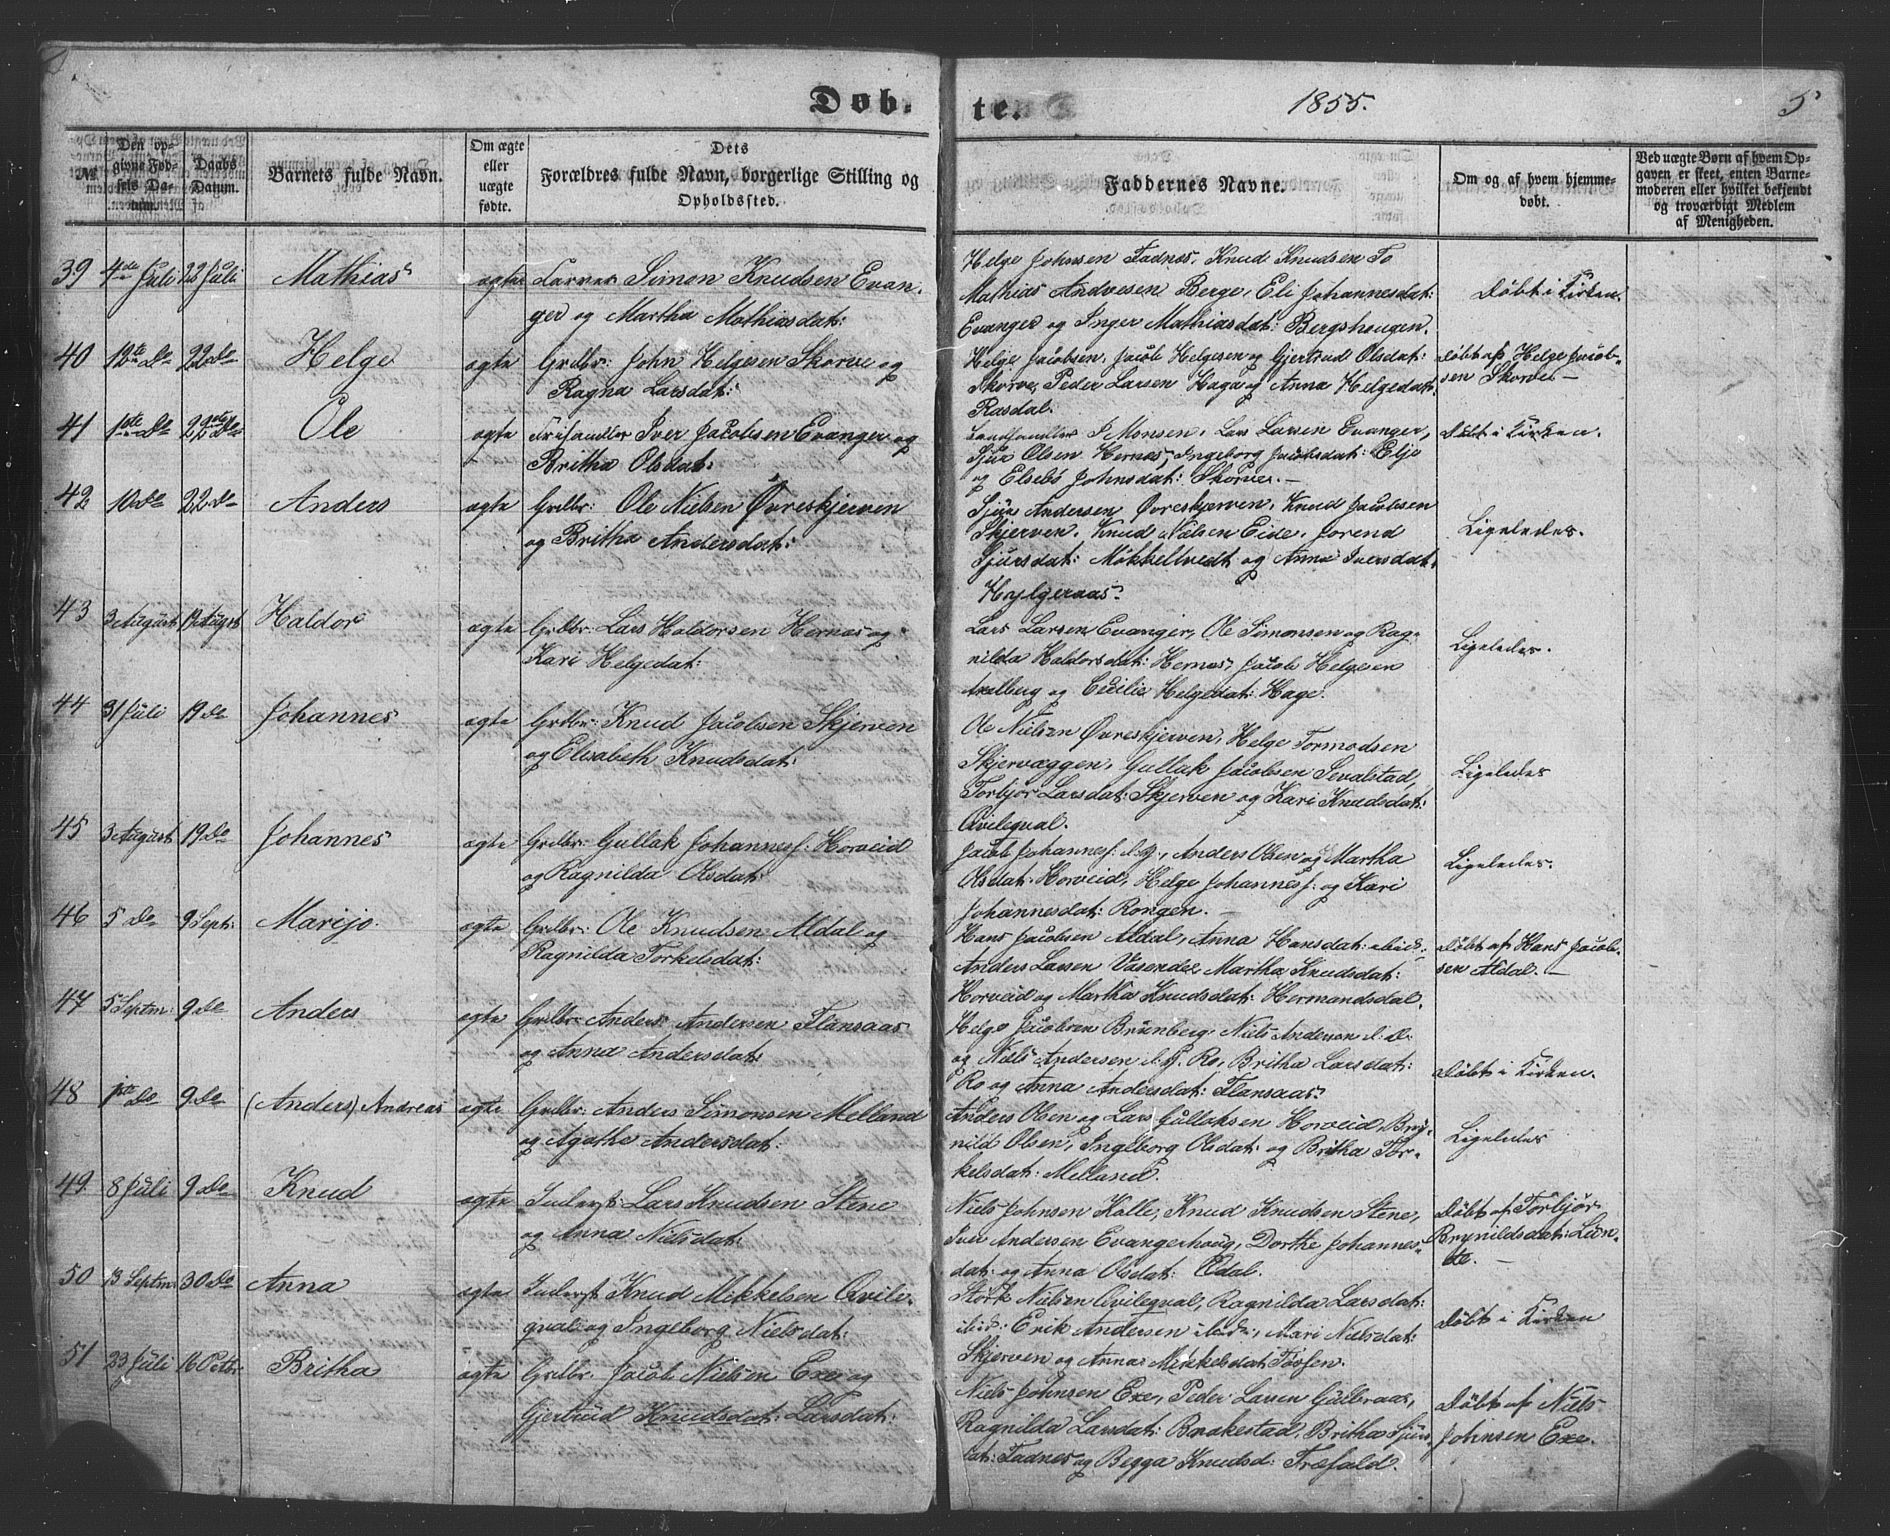 Døb.
te.
1855.
5
№
Den op-
givne Fød-
sels Da-
tum.
Daabs
Datum.
Barnets fulde Navn.
Om ægte
eller
uægte
fødte.
Dets
Forældres fulde Navn, borgerlige Stilling og
Opholdssted.
Faddernes Navne.
Om og af hvem hjemme-
døbt.
Ved uægte Børn af hvem Op-
gaven er skeet, enten Barne-
moderen eller hvilket bekjendt
og troværdigt Medlem
af Menigheden.
39 4de Juli 22 Juli Mathias ægte Farver Simon Knudsen Evan-
ger og Martha Mathiasdat:
Helge Johnsen Fadnes, Knud Knudsen To
Mathias Andersen Berge, Eli Johannesdat:
Evanger og Inger Mathiasdat: Bergshougen.
Døbt i Kirken.
40 12te Do 22 Do Helge ægte Grdbr: John Helgesen Skorve og
Ragna Larsdat:
Helge Jacobsen, Jacob Helgesen og Gjertrud Olsdat:
Skorve, Peder Larsen Haga og Anna Helgedat:
Rasdal.
Døbt af Helge Jacob-
sen Skorve. —
41 1ste Do 22 Do Ole ægte Iver Jacobsen Evanger og
Britha Olsdat:
Landhandler I Monsen, Lars Larsen Evanger,
Sjur Olsen Hernes, Ingeborg Jacobsdat: Elje
og Elsebe Johnsdat: Skorve. —
Døbt i Kirken.
42 10 Do 22 Do Anders ægte Grdbr: Ole Nielsen Øvreskjerven
og Britha Andersdat:
Sjur Andersen Øvreskjerven, Knud Jacobsen
Skjerven, Knud Nilsen Eide, Jorend
Sjursdat: Møkkeltvedt og Anna Iversdat:
Hylgeraas.
Ligeledes.
43 3 August 19 August Haldor ægte Grdbr: Lars Haldorsen Hernes og
Kari Helgedat:
Lars Larsen Evanger, Ole Simonsen og Rag-
nilda Haldorsdat: Hernes, Jacob Helgesen
og Cecilie Helgedat: Hage.
Ligeledes.
44 31 Juli 19 Do Johannes ægte Grdbr: Knud Jacobsen Skjerven
og Elisabeth Knudsdat:
Ole Nielsen Øvreskjerven, Helge Tormodsen
Skjervæggen, Gullak Jacobsen Sevalstad
Torbjør Larsdat: Skjerven og Kari Knudsdat:
Qvileqval.
Ligeledes
45 3 August 19 Do Johannes ægte Grdbr: Gullak Johannesf: Horveid
og Ragnilda Olsdat:
Jacob Johannesf: d. y., Anders Olsen og Martha
Olsdat: Horveid, Helge Johannesf: og Kari
Johannesdat: Rongen. —
Ligeledes.
46 5 Do 9 Sept: Marijo. ægte Grdbr: Ole Knudsen Aldal og
Ragnilda Torkelsdat:
Hans Jacobsen Aldal, Anna Hansdat: ibid:
Anders Larsen Vasende, Martha Knudsdat:
Horveid og Martha Knudsdat: Hermandsdal.
Døbt af Hans Jacob-
sen Aldal. —
47 5 Septm: 9 Do Anders ægte Grdbr: Anders Andersen Flansaas
og Anna Andersdat:
Helge Jacobsen Brunberg, Niels Andersen d. æ.
og Niels Andersen d. y. Ro, Britha Larsdat:
Ro og Anna Andersdat: Flansaas.
Døbt i Kirken.
48 1ste Do 9 Do (Anders) Andreas ægte Grdbr: Anders Simonsen Melland
og Agathe Andersdat:
Anders Olsen og Lars Gullaksen Horveid, Bry-
nild Olsen, Ingeborg Olsdat: og Britha Tor-
kelsdat: Melland.
Ligeledes
49 8 Juli 9 Do Knud ægte Inderst: Lars Knudsen Stene
og Anna Nielsdat:
Niels Johnsen Kalle, Knud Knudsen Stene,
Iver Andersen Evangerhoug, Dorthe Johannes-
dat: og Anna Olsdat: Ødal.
Døbt af Torbjør
Brynildsdat: Lan-
de. —
50 13 Septm: 30 Do Anna ægte Inderst Knud Mikkelsen Qvile-
qval og Ingeborg Nielsdat:
Nielsen Qvileqval, Ragnilda Larsdat:
ibid: Erik Andersen ibid:, Mari Nielsdat:
Skjerven og Anna Mikkelsdat: Tøssen.
Døbt i Kirken
51 23 Juli 16 Octbr Britha ægte Grdbr: Jacob Nielsen Exe og
Gjertrud Knudsdat: Larsdat:
Niels Johnsen Exe, Peder Larsen Gulbraa,
Ragnilda Larsdat: Brakestad, Britha Sjurs-
dat: Fadnes og Begga Knudsd: Træfald.
Døbt af Niels
Johnsen Exe.